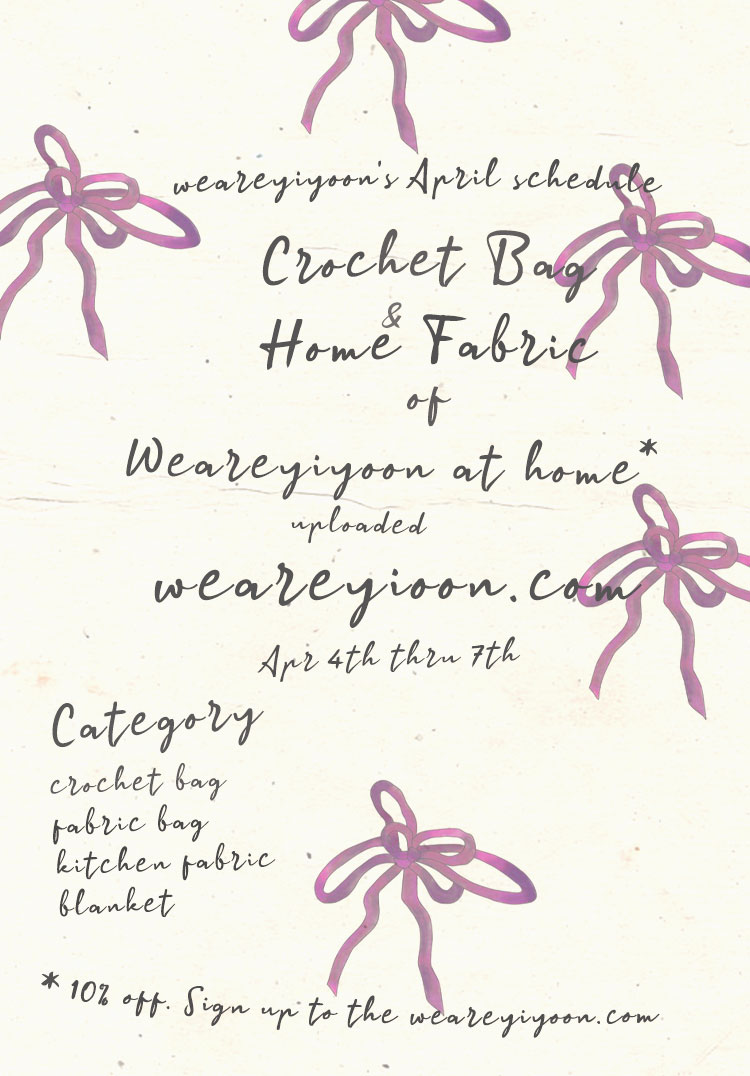 weareyiyoon's April schedule
Crochet Bag
&
Home Fabric
of
Weareyiyoon at home*
uploaded
weareyioon.com
Apr 4th thru 7th
Category
crochet bag
fabric bag
kitchen fabric
blanket
* 10% off. Sign up to the weareyiyoon.com